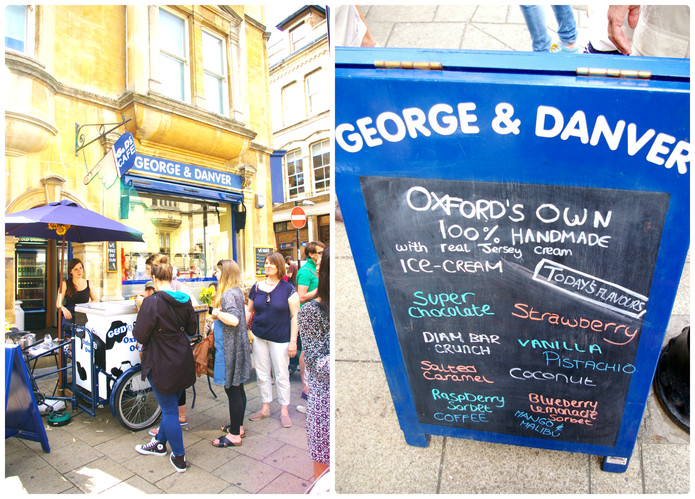 G&D'S
CAFE
GEORGE & DANVER
G&D
Ox
GEORGE & DANVER
OXFORD'S OWN
100% HANDMADE
with real Jersey cream
ICE-CREAM
TODAY'S FLAVOURS
SUPER
CHOCOLATE
STRAWBERRY
DIAM BAR
CRUNCH
VANILLA
PISTACHIO
SALTED
CARAMEL
COCONUT
RASPBERRY
SORBET
COFFEE
BLUEBERRY
LEMONADE
SORBET
MANGO &
MALIBU